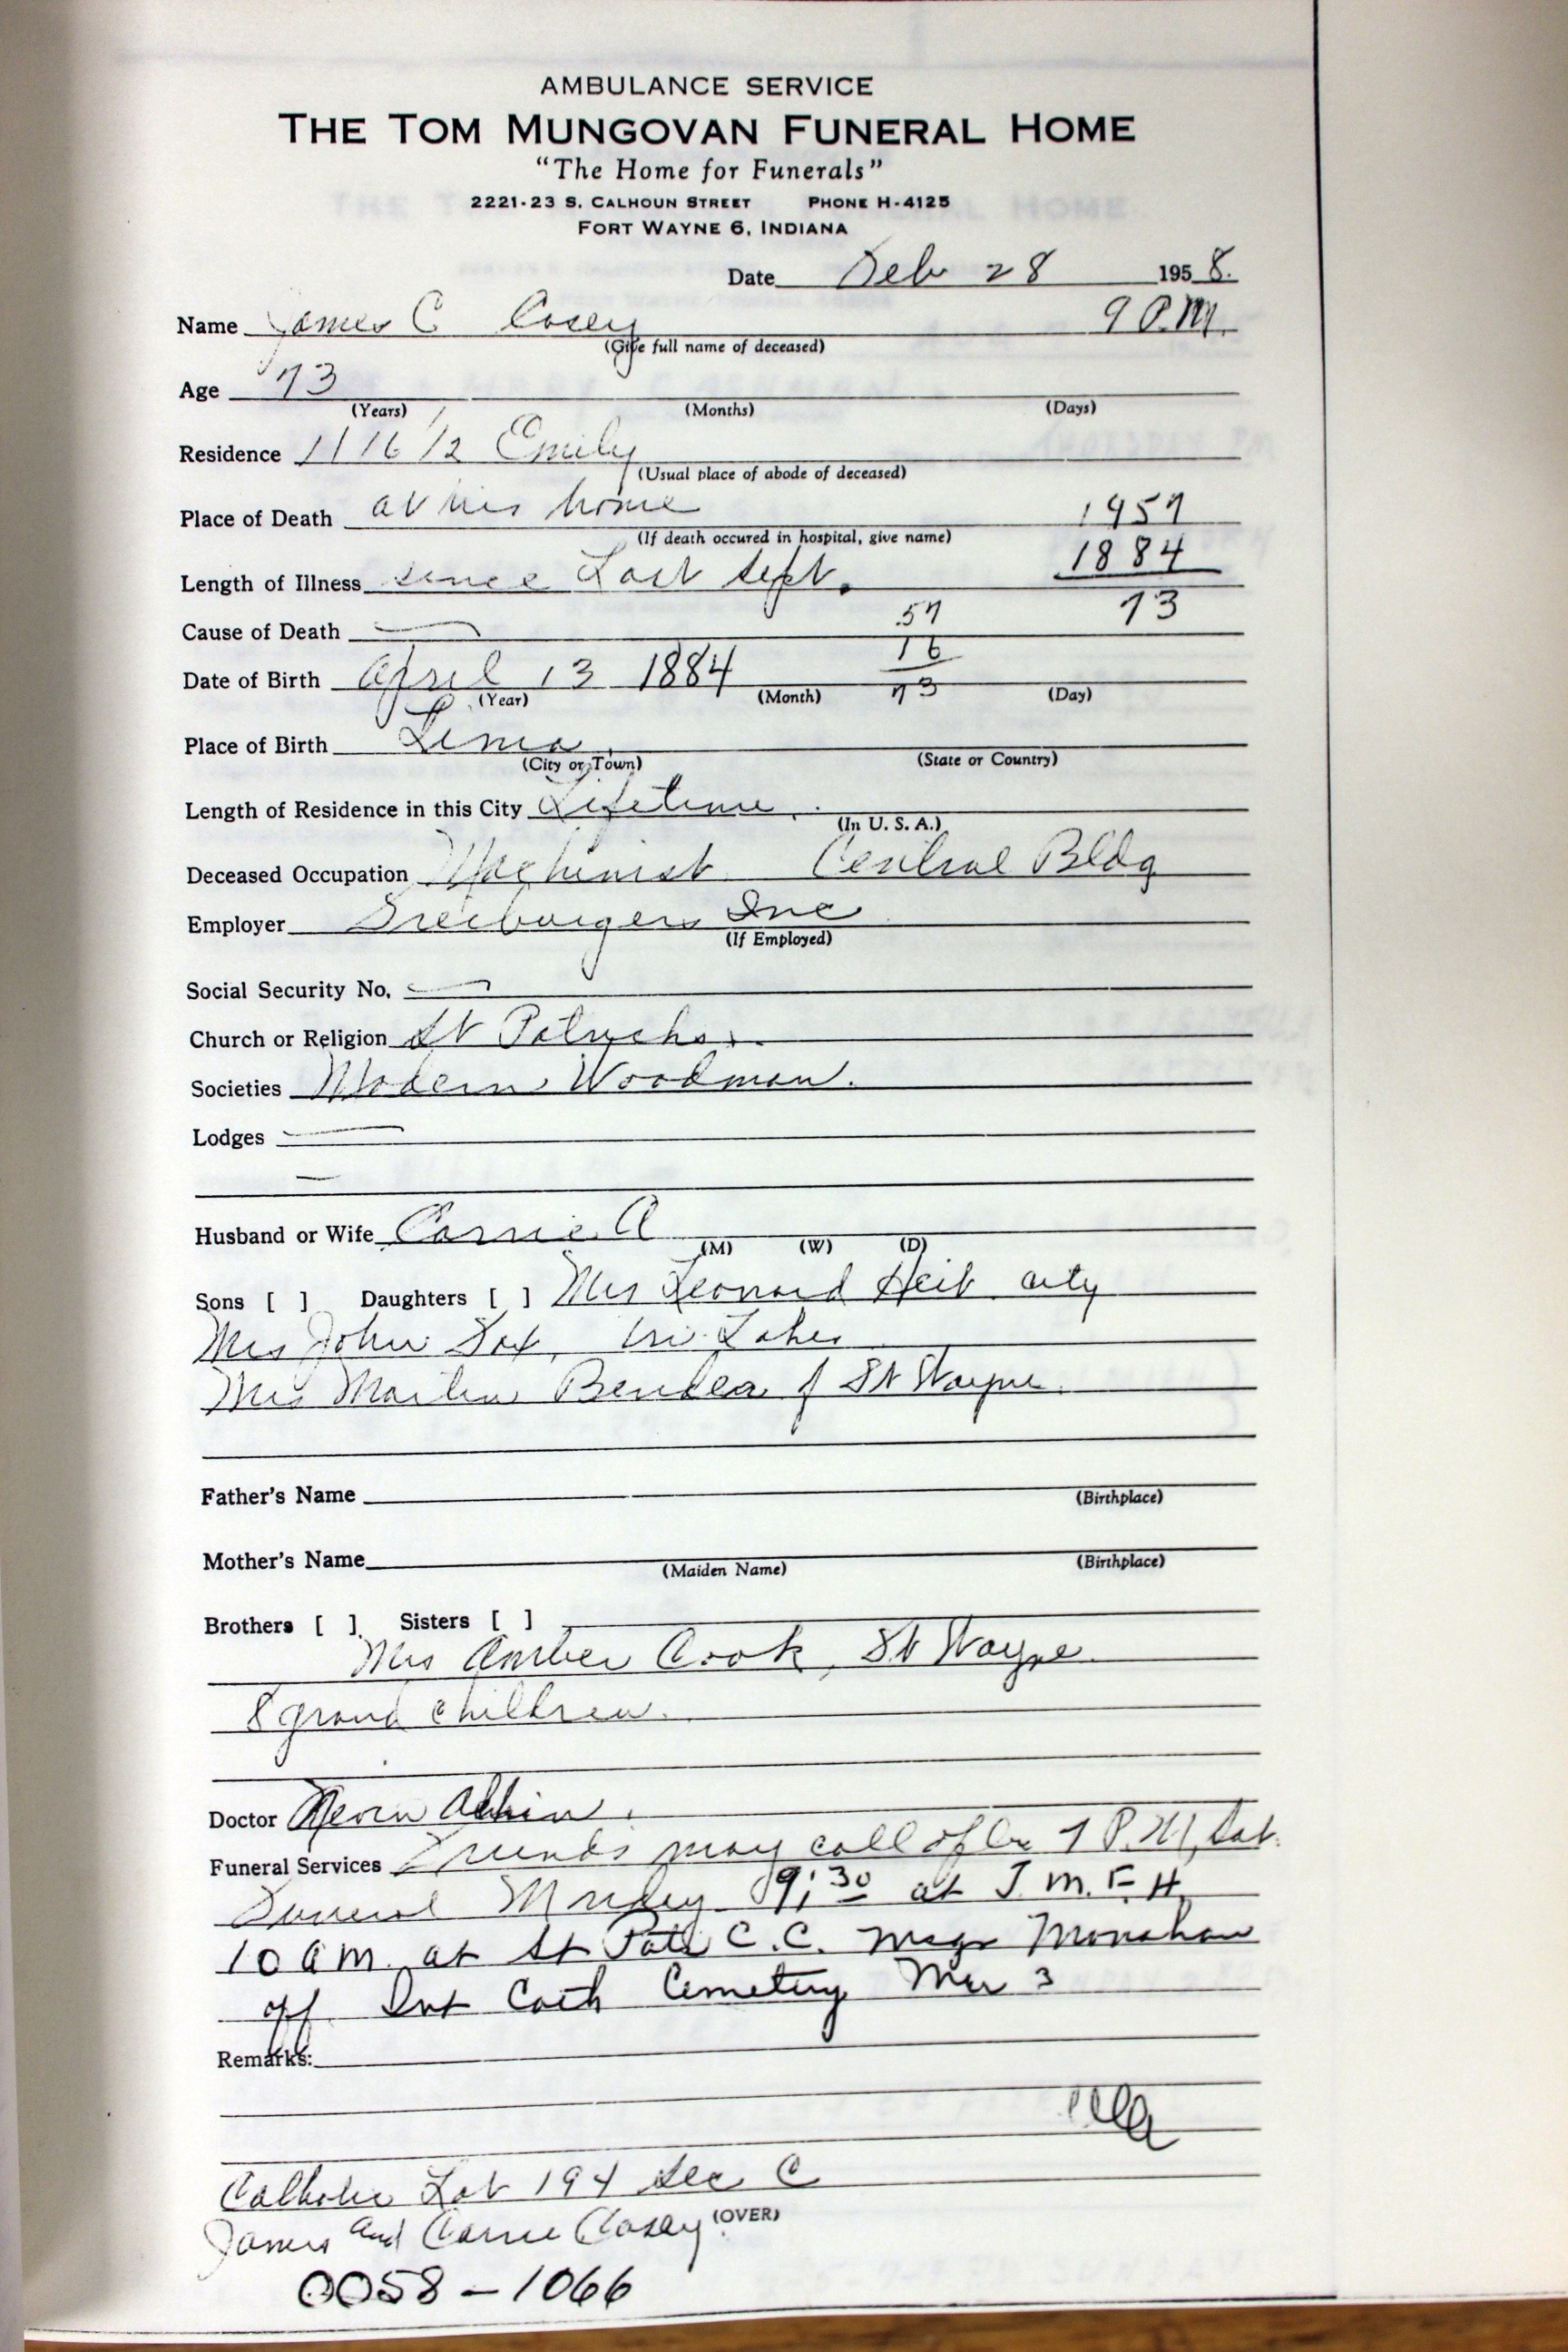 AMBULANCE SERVICE
THE TOM MUNGOVAN FUNERAL HOME
"The Home for Funerals"
2221-23 S. CALHOUN STREET PHONE H-4125
FORT WAYNE 6, INDIANA
Date Feb 28 1958.
Name James C Casey 9 P.M.
(Give full name of deceased)
Age 73
(Years) (Months) (Days)
Residence 1116 1/2 Emily
(Usual place of abode of deceased)
Place of Death at his home 1957
(If death occured in hospital, give name)
Length of Illness since Last Sept. 1884
Cause of Death — 57 73
16
Date of Birth April 13 1884 73
(Year) (Month) (Day)
Place of Birth Lima
(City or Town) (State or Country)
Length of Residence in this City Lifetime
(In U. S. A.)
Deceased Occupation Machinist Central Bldg
Employer Inc
(If Employed)
Social Security No. —
Church or Religion St Patricks.
Societies Modern Woodman.
Lodges —
—
Husband or Wife Carrie A
(M) (W) (D)
Sons [ ] Daughters [ ] Mrs Leonard city
Mrs John Tri Lakes
Mrs Martin Bender of Ft Wayne.
Father's Name
(Birthplace)
Mother's Name
(Maiden Name) (Birthplace)
Brothers [ ] Sisters [ ]
Mrs Amber Cook, Ft Wayne.
8 grand children.
Doctor
Funeral Services Friends may call after 7 P.M. Sat.
Funeral Monday 9:30 at T. M. F. H.
10 am. at St Pats C.C. Msgr Monahan
off. Int Cath Cemetery Mar 3
Remarks:
Catholic Lot 194 Sec C
(OVER)
James and Carrie Casey
0058-1066